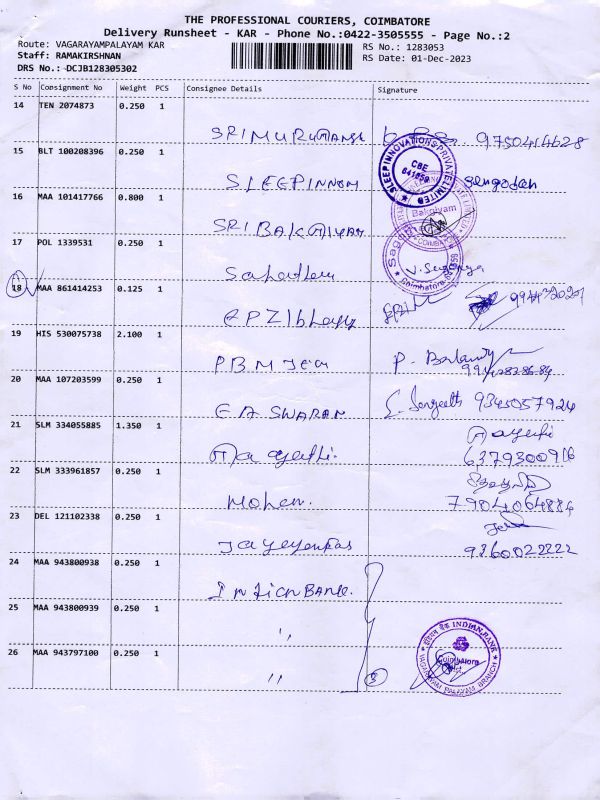 THE PROFESSIONAL COURIERS, COIMBATORE
Delivery Runsheet - KAR - Phone No.:0422-3505555 - Page No.:2
Route: VAGARAYAMPALAYAM KAR
RS No.: 1283053
Staff: RAMAKIRSHNAN
RS Date: 01-Dec-2023
DRS No.: DCJB128305302
S No Consignment No Weight PCS Consignee Details Signature
14 TEN 2074873 0.250 1
SRI MURUGANSI 9750414628
15 BLT 100208396 0.250 1
SLEEPINNOVATIONS PRIVATE LIMITED
CBE
641659
SLEEPINNOM Sengodan
16 MAA 101417766 0.800 1
Bakiyam
SRI BAKGIYAM
COIMBATORE
17 POL 1339531 0.250 1
V. Suganya
Coimbatore
18 MAA 861414253 0.125 1
19 HIS 530075738 2.100 1
PBM Tex P.
20 MAA 107203599 0.250 1
EASWARAN E. Sangeeth 9345057924
21 SLM 334055885 1.350 1
Gayethi
Gayethri. 6379300916
22 SLM 333961857 0.250 1
Mohan. 7904064884
23 DEL 121102338 0.250 1
9360022222
24 MAA 943800938 0.250 1
Indian Bank.
25 MAA 943800939 0.250 1
"
26 MAA 943797100 0.250 1
इंडियन बैंक INDIAN BANK
Coimbatore
VAGARAYAM PALAYAM BRANCH
" 3